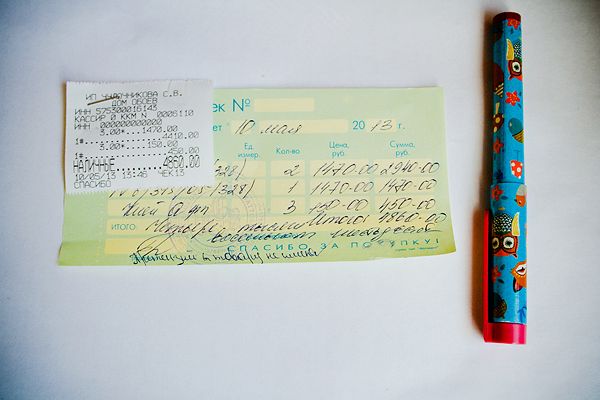 ИП ЧУДУЧНИКОВА С.В.
ДОМ ОБОЕВ
ИНН 575300016143
КАССИР 0 ККМ N 0006110
ИНН 000000000000
3.00*. 1470.00
1# 4410.00
3.00*. 150.00
1# 450.00
НАЛИЧНЫЕ 4860.00
10/05/13 13:46 ЧЕК13
СПАСИБО
ек №
ет 10 мая 2013 г.
Ед. измер. Кол-во Цена, руб. Сумма, руб.
/328/ 2 1470-00 2940-00
/05/328/ 1 1470-00 1470-00
Клей 3 150-00 450-00
ИТОГО: четыре тысячи Итого: 4860-00
восемьсот шестьдесят
СПАСИБО ЗА ПОКУПКУ!
Претензии к товару не имею